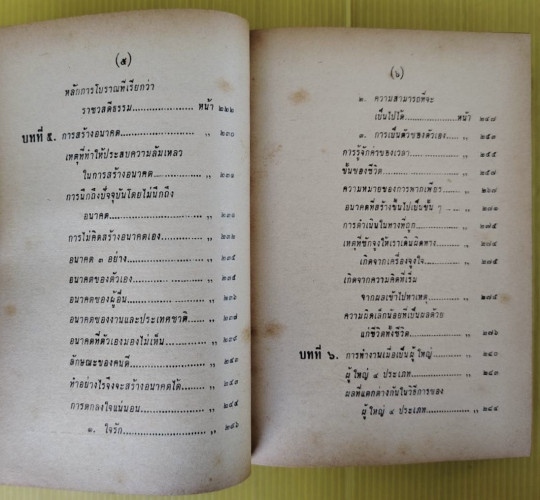 (๕)
หลักการโบราณที่เรียกว่า
ราชวสดีธรรม.................... หน้า ๒๒๒
บทที่ ๕. การสร้างอนาคต.................... ,, ๒๓๐
เหตุที่ทำให้ประสบความล้มเหลว
ในการสร้างอนาคต.................... ,, ๒๓๑
การนึกถึงปัจจุบันโดยไม่นึกถึง
อนาคต.................... ,,
การไม่คิดสร้างอนาคตเอง.................... ,, ๒๓๒
อนาคต ๓ อย่าง.................... ,, ๒๓๕
อนาคตของตัวเอง.................... ,, ๒๓๕
อนาคตของผู้อื่น.................... ,, ๒๓๖
อนาคตของงานและประเทศชาติ........ ,, ๒๓๗
อนาคตที่ตัวเองมองไม่เห็น.................... ,,
ลักษณะของคนดี.................... ,, ๒๔๓
ทำอย่างไรจึงจะสร้างอนาคตได้........ ,,
การตกลงใจแน่นอน.................... ,, ๒๔๕
๑. ใจรัก.................... ,, ๒๔๖
(๖)
๒. ความสามารถที่จะ
เป็นไปได้....................หน้า ๒๔๘
๓. การเป็นตัวของตัวเอง........ ,,
การรู้จักค่าของเวลา.................... ,, ๒๕๕
ขั้นของชีวิต.................... ,, ๒๕๗
ความหมายของการพากเพียร........ ,, ๒๖๗
อนาคตที่สร้างขึ้นไปเป็นขั้น ๆ ........ ,, ๒๗๑
การดำเนินในทางที่ถูก.................... ,, ๒๗๕
เหตุที่ชักจูงให้เราเดินผิดทาง........ ,, ๒๗๔
เกิดจากเครื่องจูงใจ.................... ,, ๒๗๕
เกิดจากความคิดที่เริ่ม
จากผลเข้าไปหาเหตุ.................... ,, ๒๗๕
ความผิดเล็กน้อยที่เป็นผลด้วย
แก่ชีวิตทั้งชีวิต.................... ,, ๒๗๖
บทที่ ๖. การทำงานเมื่อเป็นผู้ใหญ่........ ,, ๒๘๐
ผู้ใหญ่ ๔ ประเภท.................... ,, ๒๘๓
ผลที่แตกต่างกันในวิธีการของ
ผู้ใหญ่ ๔ ประเภท.................... ,, ๒๘๔